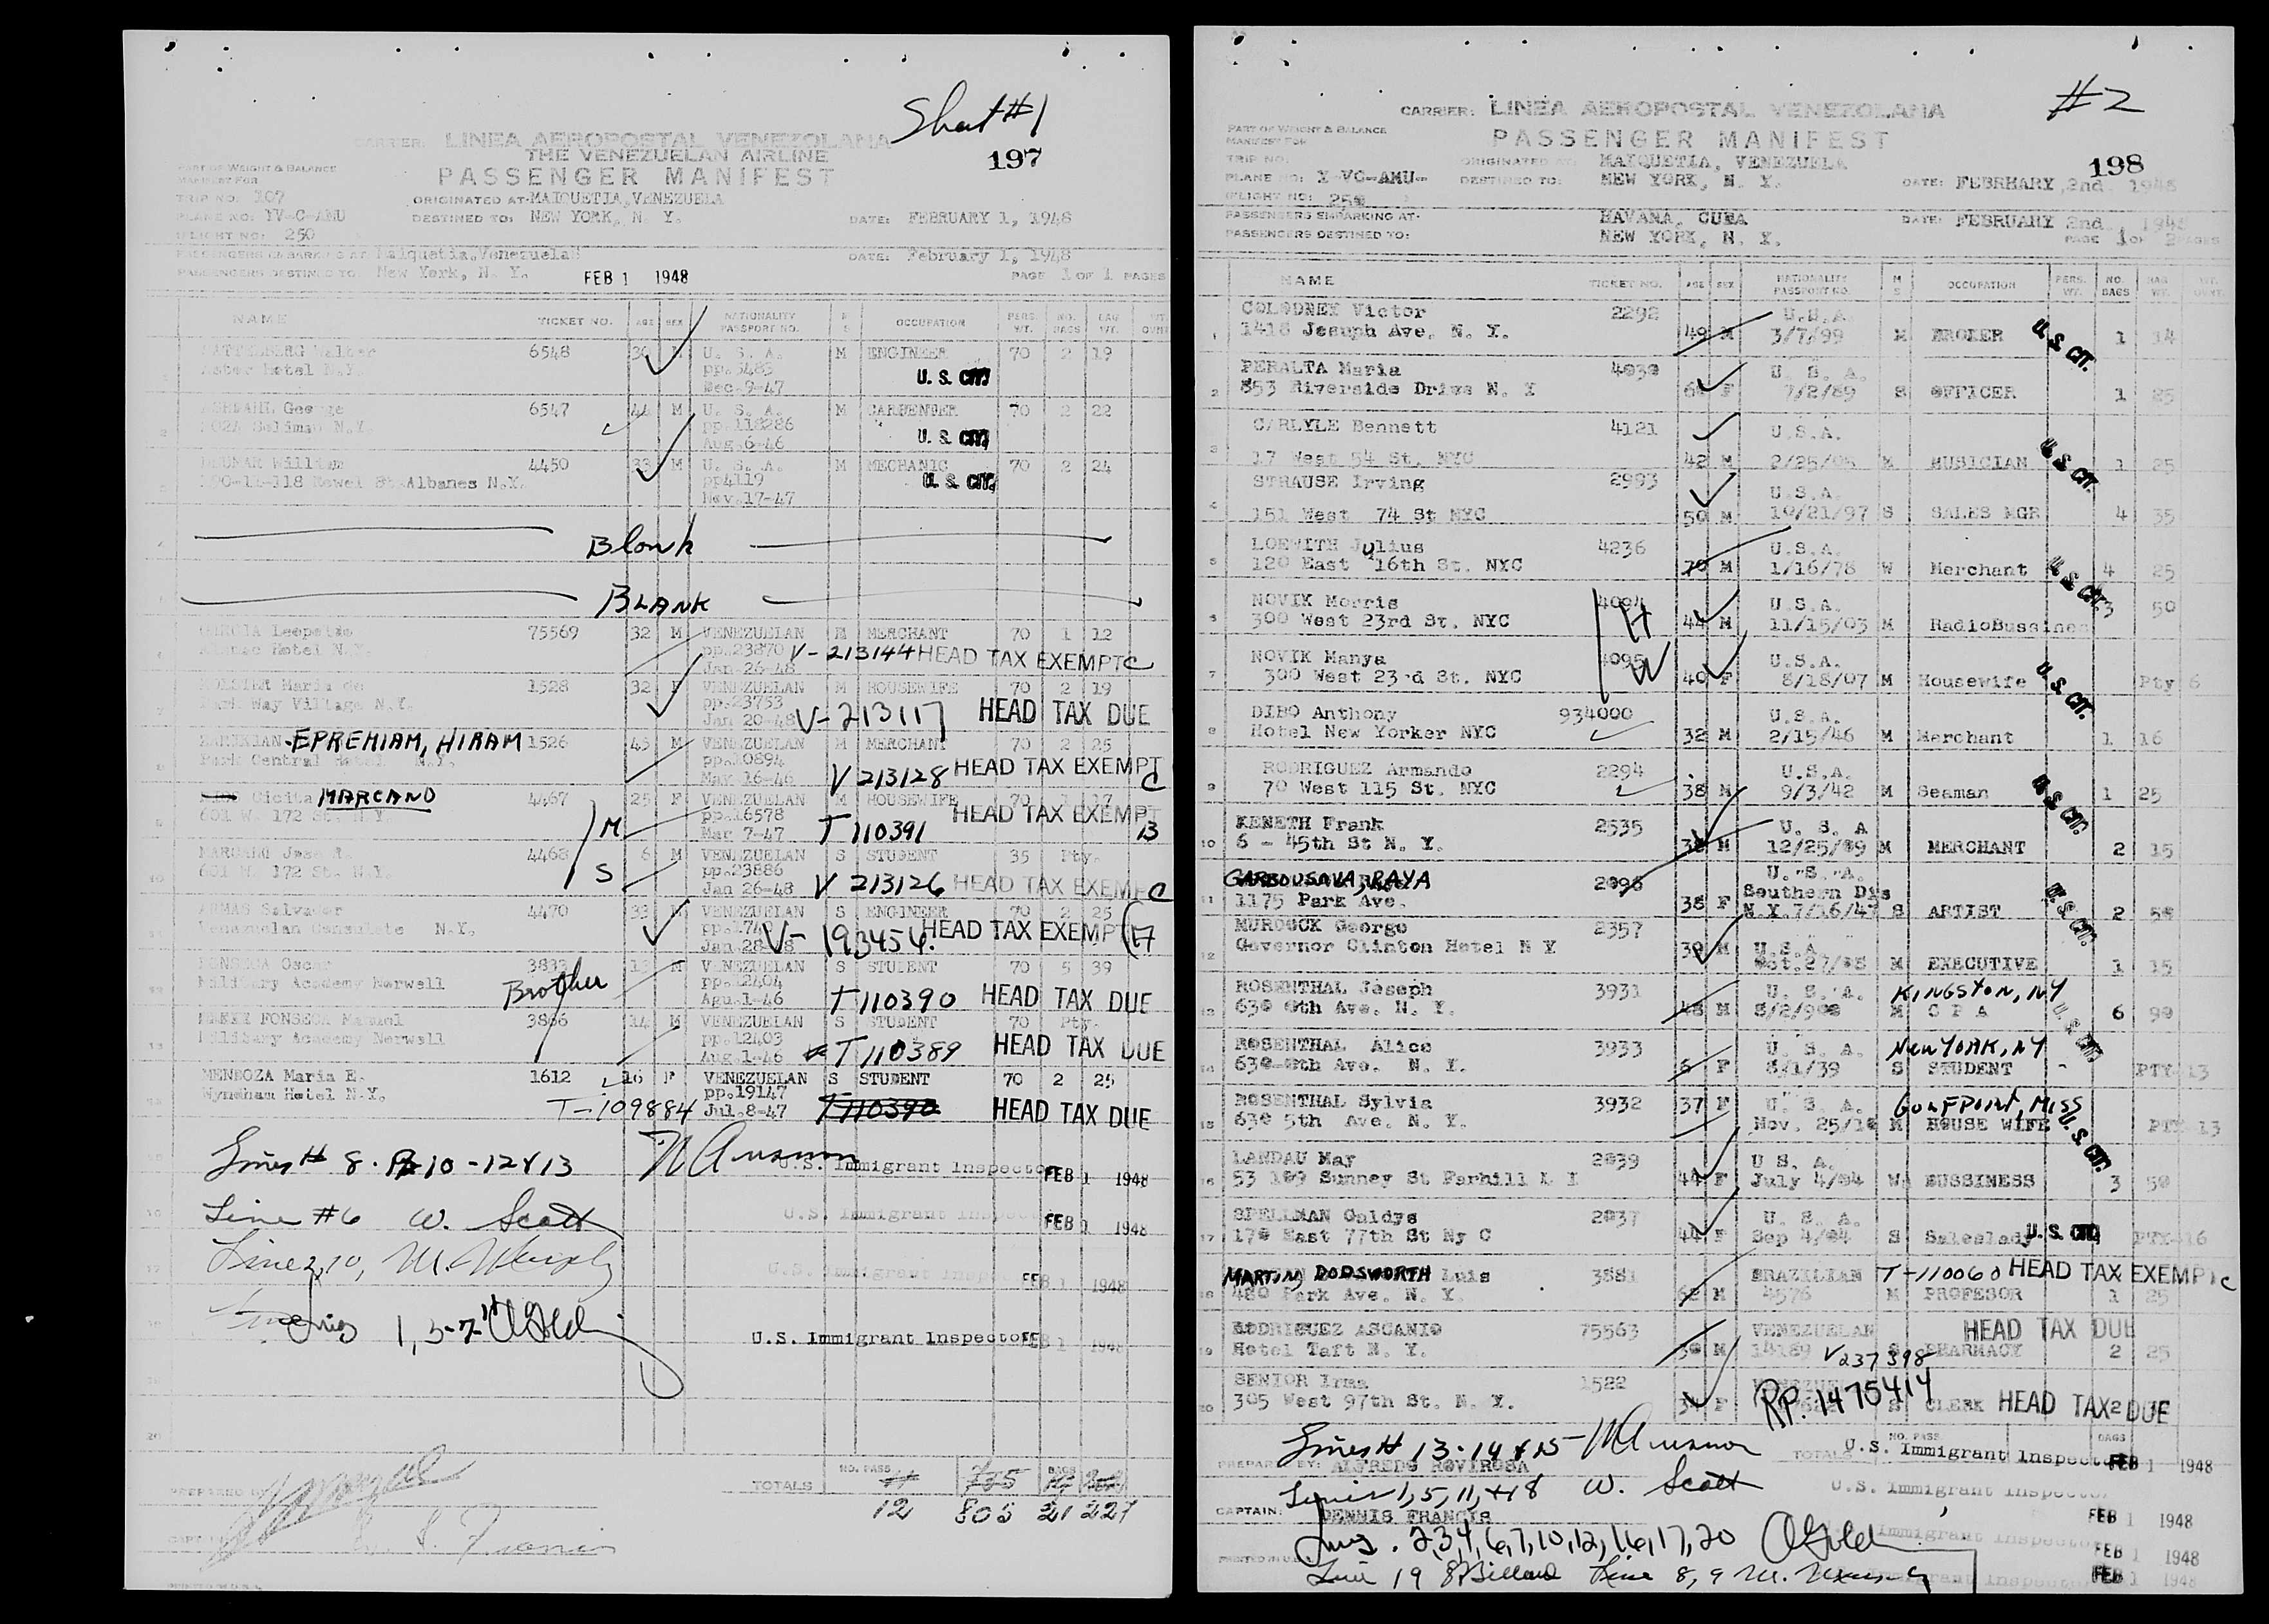 Sheet #1
CARRIER: LINEA AEROPOSTAL VENEZOLANA
THE VENEZUELAN AIRLINE
197
PART OF WEIGHT & BALANCE
MANIFEST FOR
PASSENGER MANIFEST
TRIP NO. 107 ORIGINATED AT: MAIQUETIA, VENEZUELA
PLANE NO: YV-C-AMU DESTINED TO: NEW YORK, N. Y. DATE: FEBRUARY 1, 1948
FLIGHT NO: 250
PASSENGERS EMBARKING AT Maiquetia, Venezuela DATE: February 1, 1948
PASSENGERS DESTINED TO: New York, N. Y. FEB 1 1948 PAGE 1 OF 1 PAGES
NAME TICKET NO. AGE SEX NATIONALITY PASSPORT NO. OCCUPATION PERS. WT. NO. BAGS BAG WT.
Walter 6548 U. S. A. M ENGINEER 70 2 19
Hotel N.Y. pp. 3483 U. S. CIT.
Dec. 9-47
George 6547 44 M U. S. A. M CARPENTER 70 2 22
N.Y. pp. 118286 U. S. CIT.
Aug. 6-46
William 4450 33 M U. S. A. M MECHANIC 70 2 24
St. Albanes N.Y. pp4119 U. S. CIT.
Nov. 17-47
Blank
BLANK
GARCIA Leopoldo 75569 32 M VENEZUELAN M MERCHANT 70 1 12
Hotel N.Y. pp. 23870 V-213144 HEAD TAX EXEMPT C
Jan-26-48
Maria de 1528 32 F VENEZUELAN M HOUSEWIFE 70 2 19
Park Way Village N.Y. pp. 23753
Jan 20-48 V-213117 HEAD TAX DUE
EPREMIAM, HIRAM 1526 45 M VENEZUELAN M MERCHANT 70 2 25
Park Central Hotel N.Y. pp. 10894
May 16-46 V 213128 HEAD TAX EXEMPT C
MARCANO 4467 25 F VENEZUELAN M HOUSEWIFE 70 17
601 W. 172 St. N.Y. M pp. 16578 HEAD TAX EXEMPT
Mar 7-47 T 110391 13
MARCANO Jose R. 4468 6 M VENEZUELAN S STUDENT 35 Pty.
601 W. 172 St. N.Y. S pp. 23886
Jan 26-48 V 213126 HEAD TAX EXEMPT C
ARMAS Salvador 4470 33 M VENEZUELAN S ENGINEER 70 2 25
Venezuelan Consulate N.Y. V-193454. HEAD TAX EXEMPT
FONSECA Oscar M VENEZUELAN S STUDENT 70 5 39
Military Academy Norwell Brother pp. 12404
Agu. 1-46 T 110390 HEAD TAX DUE
FONSECA 3886 14 M VENEZUELAN S STUDENT 70 Pty.
Military Academy Norwell pp. 12403
Aug. 1-46 T 110389 HEAD TAX DUE
MENDOZA Maria E. 1612 16 F VENEZUELAN S STUDENT 70 2 25
Wyndham Hotel N.Y. pp. 19147
T-109884 Jul. 8-47 T110390 HEAD TAX DUE
Lines # 8. 10 - 12 & 13 U.S. Immigrant Inspector FEB 1 1948
Line #6 W. Scott U.S. Immigrant Inspector FEB 1 1948
Line 2, 10, M. Murphy U.S. Immigrant Inspector FEB 1 1948
Lines 1, 3-7 U.S. Immigrant Inspector FEB 1 1948
NO. PASS BAGS
PREPARED BY TOTALS
12 805 21 227
#2
CARRIER: LINEA AEROPOSTAL VENEZOLANA
PART OF WEIGHT & BALANCE
MANIFEST FOR
PASSENGER MANIFEST
198
TRIP NO. ORIGINATED AT: MAIQUETIA, VENEZUELA
PLANE NO: Y-VC-AMU- DESTINED TO: NEW YORK, N. Y. DATE: FEBRHARY 2nd. 1948
FLIGHT NO: 250
PASSENGERS EMBARKING AT: HAVANA, CUBA DATE: FEBRUARY 2nd. 1948
PASSENGERS DESTINED TO: NEW YORK, N. Y. PAGE 1 OF 2 PAGES
NAME TICKET NO. AGE SEX NATIONALITY PASSPORT NO. M S OCCUPATION PERS. WT. NO. BAGS BAG WT.
1 COLODNEY Victor 2292 U.S.A.
1418 Jesuph Ave. N. Y. 49 M 3/7/99 M BROKER U. S. CIT. 1 14
2 PERALTA Maria 4030 U. S. A.
853 Riverside Drive N. Y F 7/2/89 S OFFICER 1 25
3 CARLYLE Bennett 4121 U.S.A.
17 West 54 St. NYC 42 M 2/25/05 MUSICIAN U. S. CIT. 1 25
4 STRAUSE Irving 2993 U.S.A.
151 West 74 St NYC 50 M 10/21/97 S SALES MGR 4 35
5 LOEWITH Julius 4236 U.S.A.
120 East 16th St. NYC 70 M 1/16/78 W Merchant U. S. CIT. 4 25
6 NOVIK Morris 4094 H U.S.A. 3 50
300 West 23rd St. NYC 44 M 11/15/03 M RadioBussines
7 NOVIK Manya 4095 W U.S.A.
300 West 23rd St. NYC 40 F 8/18/07 M Housewife U. S. CIT. Pty 6
8 DIBO Anthony 934000 U.S.A.
Hotel New Yorker NYC 32 M 2/15/46 M Merchant 1 16
9 RODRIGUEZ Armando 2294 U.S.A.
70 West 115 St. NYC 38 M 9/3/42 M Seaman U. S. CIT. 1 25
10 KENETH Frank 2535 U. S. A
6 - 45th St N. Y. 38 M 12/25/09 M MERCHANT 2 15
11 GARBOUSOVA, RAYA 2096 U.S.A.
1175 Park Ave. 38 F Southern Dis N.Y. 7/16/47 S ARTIST U. S. CIT. 2 50
12 MURDOCK George 2357
Governor Clinton Hotel N Y 39 M U.S.A Oct. 27/08 M EXECUTIVE 1 15
13 ROSENTHAL Joseph 3931 U. S. A. KINGSTON, NY
630 6th Ave. N. Y. 48 M M C P A U. S. CIT. 6 99
14 ROSENTHAL Alice 3933 U. S. A. NEW YORK, NY
630 6th Ave. N. Y. F 8/1/39 S STUDENT - PTY 13
15 ROSENTHAL Sylvia 3932 37 F U. S. A. GULFPOINT, MISS
630 5th Ave. N. Y. Nov. 25/10 M HOUSE WIFE U. S. CIT. PTY 13
16 LANDAU May 2039 U S. A.
53 109 Sunney St Parhill L I 44 F July 4/04 W BUSSINESS 3 50
17 SPELLMAN Galdys 2037 U. S. A.
170 East 77th St Ny C 44 F Sep 4/04 S Saleslady U. S. CIT. PTY 16
18 MARTIN DODSWORTH Luis 3881 BRAZILIAN T-110060 HEAD TAX EXEMPT C
480 Park Ave. N. Y. 62 M 4576 M PROFESOR 1 25
19 RODRIGUEZ ASCANIO 75563 VENEZUELAN HEAD TAX DUE
Hotel Taft N. Y. 30 M 14189 V237398 S PHARMACY 2 25
20 SENIOR Irma 1522
305 West 97th St. N. Y. F RP. 1475414 S CLERK HEAD TAX DUE 2
Lines # 13 - 14 & 15 TOTALS NO. PASS BAGS U.S. Immigrant Inspector FEB 1 1948
PREPARED BY: ALFREDO ROVIROSA
Lines 1, 5, 11, & 18 W. Scott U.S. Immigrant Inspector
CAPTAIN: DENNIS FRANCIS FEB 1 1948
Lines. 2,3,4,6,7,10,12,16,17,20 Immigrant Inspector FEB 1 1948
Line 19 Line 8, 9 M. Murphy Immigrant Inspector FEB 1 1948